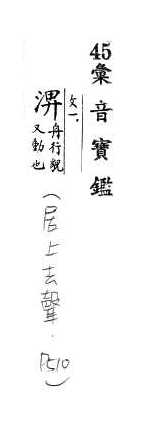 45彙音寶鑑
攵一.
淠舟行貌
又動也
(居上去聲. P.510)